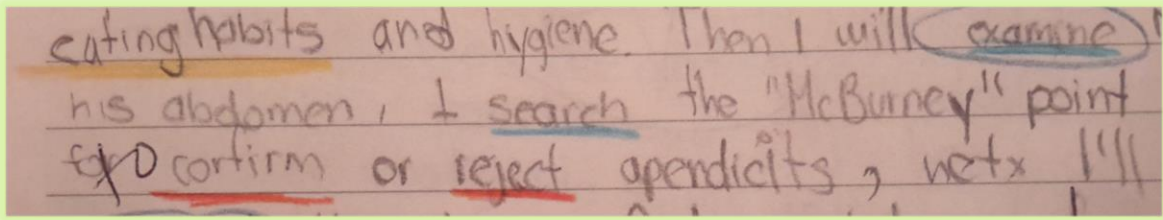 eating habits and hygiene. Then I will examine
his abdomen, I search the "McBurney" point
to confirm or reject apendicits, netx I'll